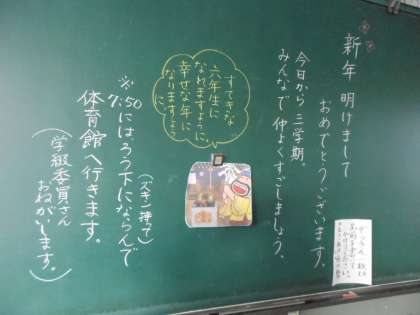 新年 明けまして
おめでとうございます。
今日から 三学期。
みんなで 仲よくすごしましょう。
すてきな
六年生に
なれますように。
幸せな年に
なりますように。
(ズキン持って)
※7:50にはろう下にならんで
体育館へ行きます。
(学級委員さん
おねがいします。)